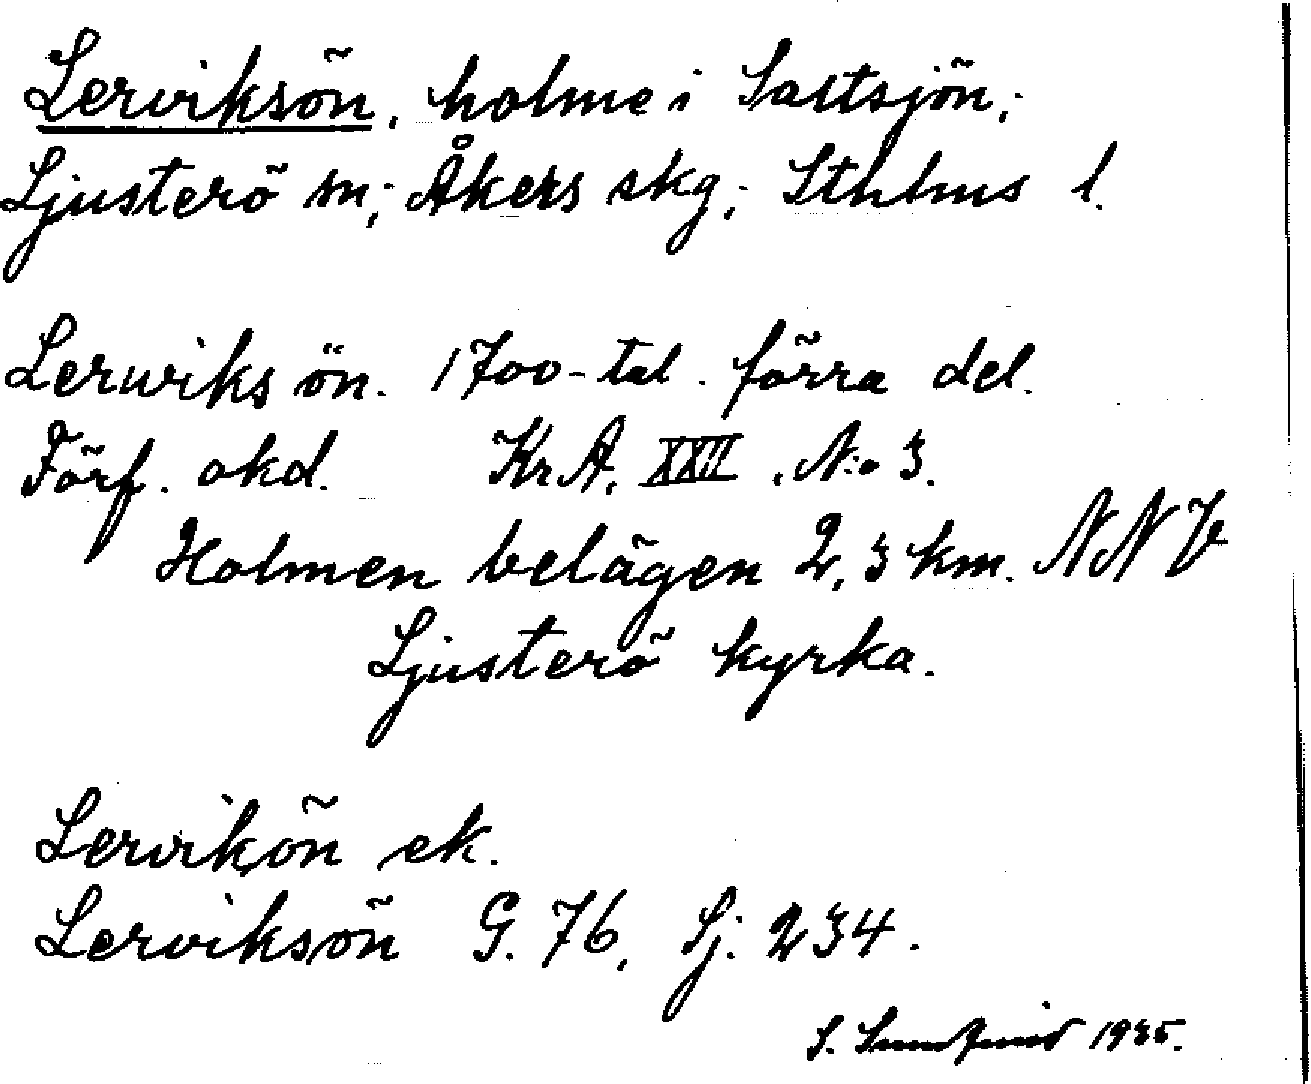 Lerviksön, holme i Saltsjön,
Ljusterö sn; Åkers skg; Sthlms l.
Lerwiks ön. 1700-tal. förra del.
Förf. okd. KrA. XXII. N:o 3.
Holmen belägen 2,3 km. NNV
Ljusterö kyrka.
Lervikön ek.
Lerviksön G. 76, Sj. 234.
S. 1935.